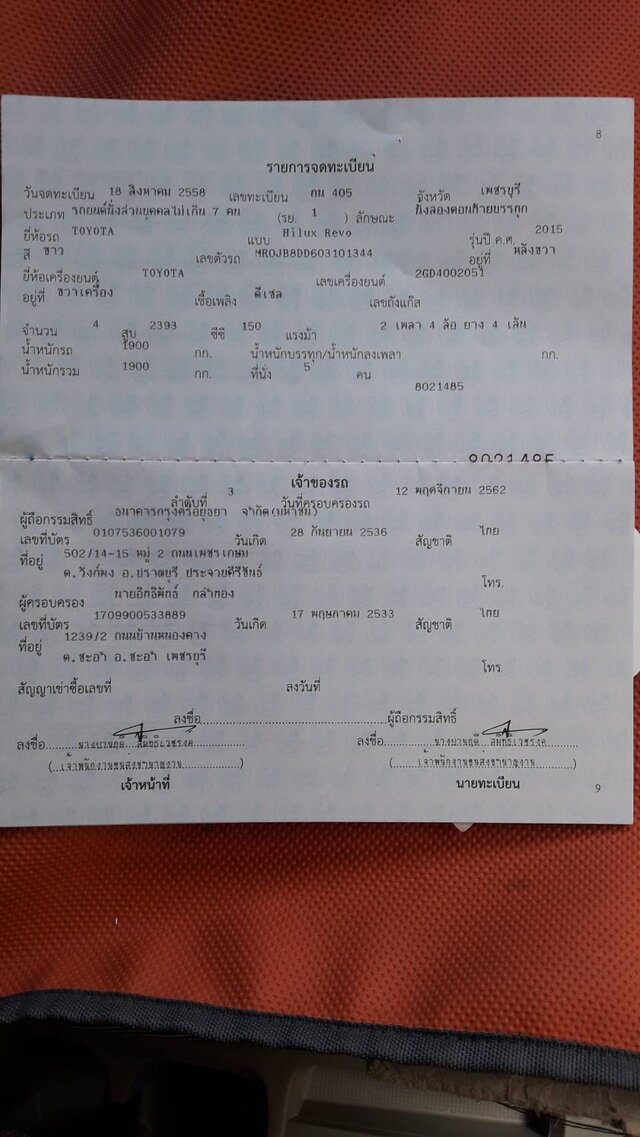 8
รายการจดทะเบียน
วันจดทะเบียน 18 สิงหาคม 2558 เลขทะเบียน กน 405 จังหวัด เพชรบุรี
ประเภท รถยนต์นั่งส่วนบุคคลไม่เกิน 7 คน (รย. 1 ) ลักษณะ นั่งสองตอนท้ายบรรทุก
ยี่ห้อรถ TOYOTA แบบ Hilux Revo รุ่นปี ค.ศ. 2015
สี ขาว เลขตัวรถ MR0JB8DD603101344 อยู่ที่ หลังขวา
ยี่ห้อเครื่องยนต์ TOYOTA เลขเครื่องยนต์ 2GD4002051
อยู่ที่ ขวาเครื่อง เชื้อเพลิง ดีเซล เลขถังแก๊ส
จำนวน 4 สูบ 2393 ซีซี 150 แรงม้า 2 เพลา 4 ล้อ ยาง 4 เส้น
น้ำหนักรถ 1900 กก. น้ำหนักบรรทุก/น้ำหนักลงเพลา กก.
น้ำหนักรวม 1900 กก. ที่นั่ง 5 คน
8021485
8021485
เจ้าของรถ
ลำดับที่ 3 วันที่ครอบครองรถ 12 พฤศจิกายน 2562
ผู้ถือกรรมสิทธิ์ ธนาคารกรุงศรีอยุธยา จำกัด(มหาชน)
เลขที่บัตร 0107536001079 วันเกิด 28 กันยายน 2536 สัญชาติ ไทย
ที่อยู่ 502/14-15 หมู่ 2 ถนนเพชรเกษม
ต.วังก์พง อ.ปราณบุรี ประจวบคีรีขันธ์ โทร.
ผู้ครอบครอง นายอิทธิพัทธ์ กล่ำทอง
เลขที่บัตร 1709900533889 วันเกิด 17 พฤษภาคม 2533 สัญชาติ ไทย
ที่อยู่ 1239/2 ถนนบ้านหนองคาง
ต.ชะอำ อ.ชะอำ เพชรบุรี โทร.
สัญญาเช่าซื้อเลขที่ ลงวันที่
ลงชื่อ ผู้ถือกรรมสิทธิ์
ลงชื่อ ลงชื่อ
(เจ้าพนักงานขนส่งชำนาญงาน) (เจ้าพนักงานขนส่งชำนาญงาน)
เจ้าหน้าที่ นายทะเบียน
9